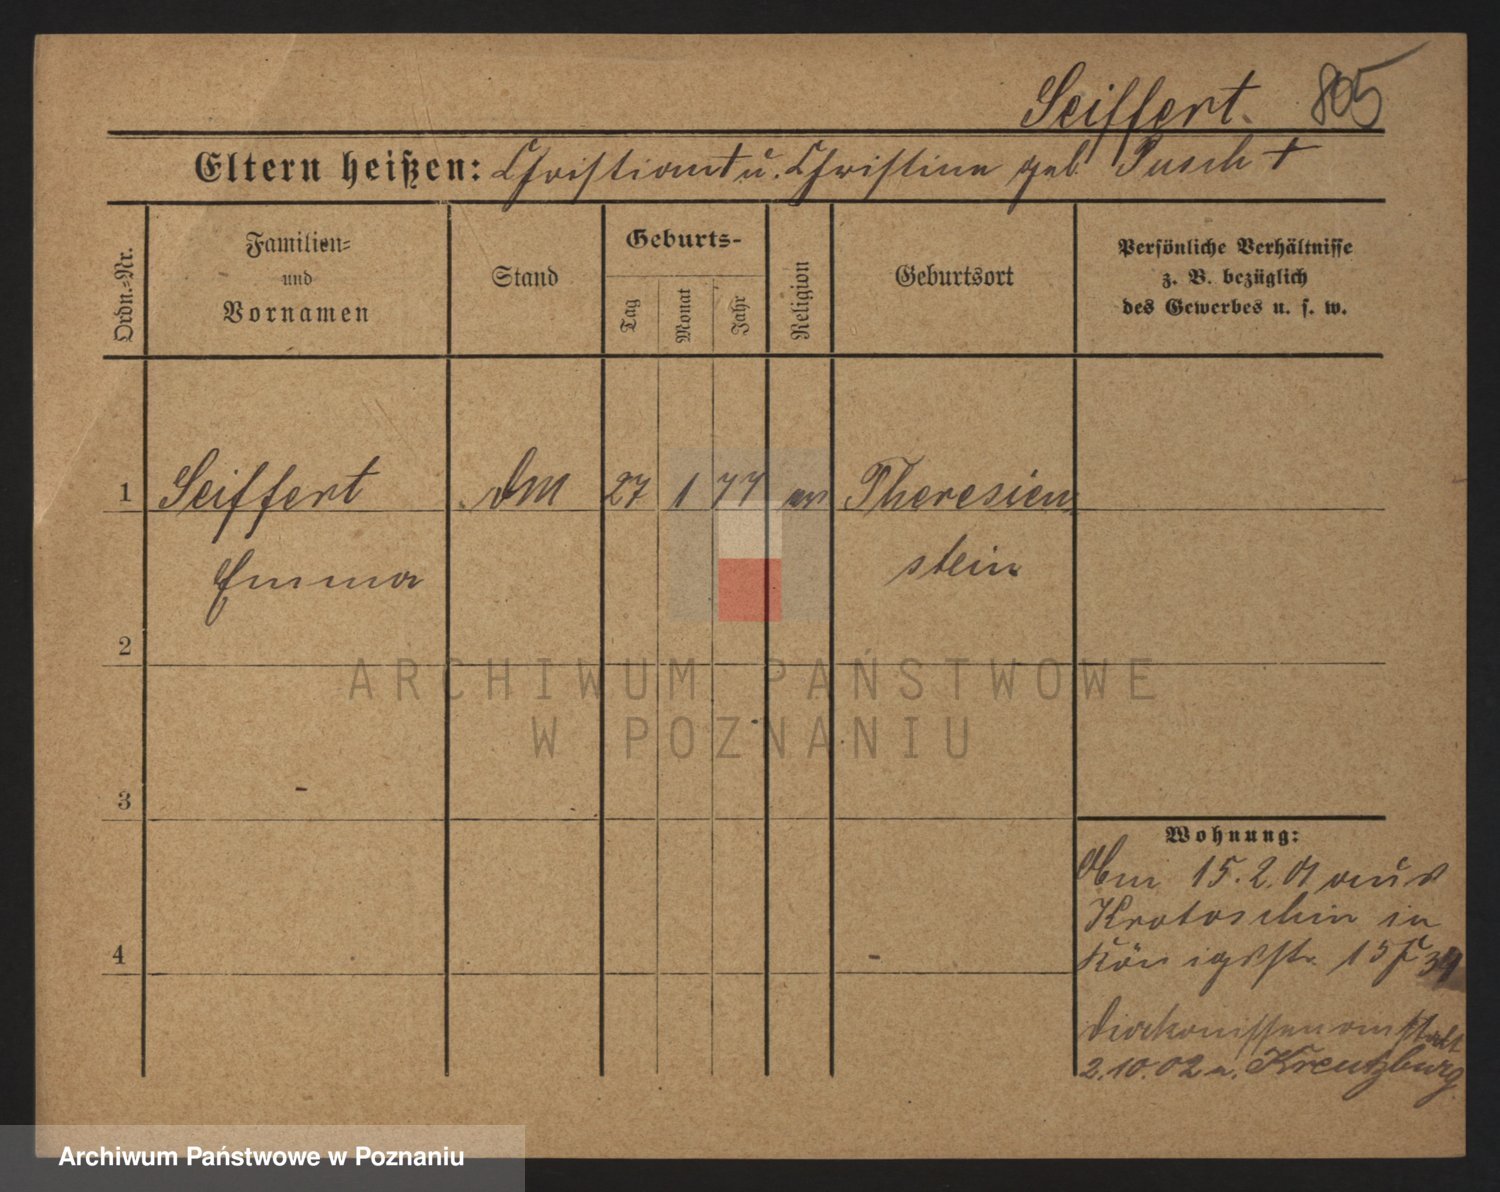 Seiffert. 805
Eltern heißen: Christian † u. Christine geb. Pusch †
Ordn.-Nr.
Familien-
und
Vornamen
Stand
Geburts-
Tag
Monat
Jahr
Religion
Geburtsort
Persönliche Verhältnisse
z. B. bezüglich
des Gewerbes u. s. w.
1 Seiffert DM 27 1 77 ev Theresien
Emma stein
2
3
4
Wohnung:
15.2.01 aus
Krotoschin in
Königsstr. 15
Diakonissenanstalt
2.10.02 n. Kreutzburg
ARCHIWUM PAŃSTWOWE
W POZNANIU
Archiwum Państwowe w Poznaniu